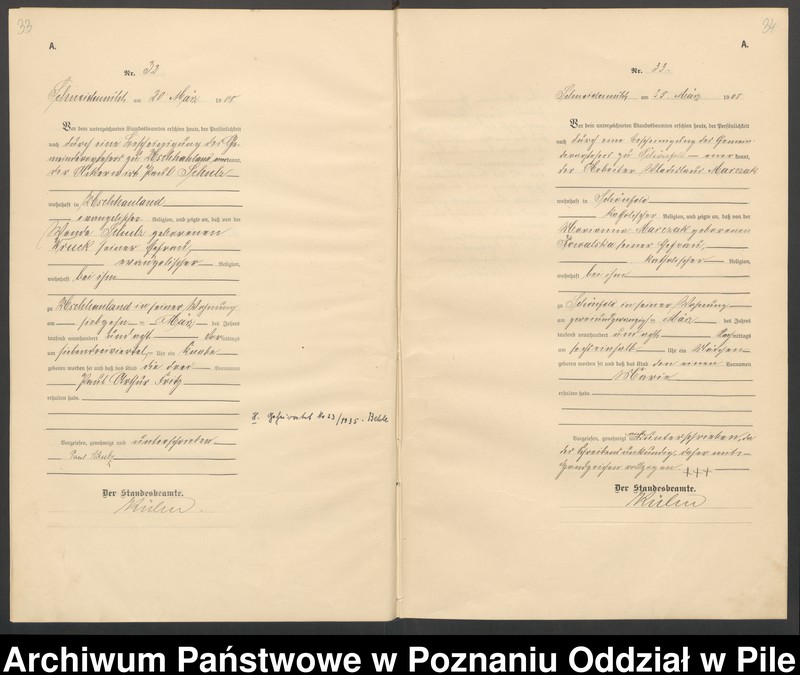 33
A.
Nr. 32
Schneidemühl, am 20 März 1908
Vor dem unterzeichneten Standesbeamten erschien heute, der Persönlichkeit
nach durch eine Bescheinigung des Ge-
meindevorstehers zu
der Ackerwirt Paul Schulz
wohnhaft in
evangelischer Religion, und zeigte an, daß von der
Wanda Schulz geborenen
Wruck seiner Ehefrau,
evangelischer Religion,
wohnhaft bei ihm
zu in seiner Wohnung
am siebzehn = März des Jahres
tausend neunhundert und acht Vormittags
um siebendreiviertel Uhr ein Knabe
geboren worden sei und daß das Kind die drei Vornamen
Paul Arthur Fritz
erhalten habe.
Vorgelesen, genehmigt und unterschrieben
Paul Schulz
Der Standesbeamte.
H. Geheiratet No 23/1935. Behle
34
A.
Nr. 33.
Schneidemühl, am 25. März 1908.
Vor dem unterzeichneten Standesbeamten erschien heute, der Persönlichkeit
nach durch eine Bescheinigung des Gemein-
devorstehers zu Schönfeld — anerkannt,
der Arbeiter Wladislaus Marczak
wohnhaft in Schönfeld
katholischer Religion, und zeigte an, daß von der
Marianna Marczak geborenen
Kowalska seiner Ehefrau,
katholischer Religion,
wohnhaft bei ihm
zu Schönfeld in seiner Wohnung
am zweiundzwanzigsten März des Jahres
tausend neunhundert und acht Nachmittags
um sechseinhalb Uhr ein Mädchen
geboren worden sei und daß das Kind den einen Vornamen
Marie
erhalten habe.
Vorgelesen, genehmigt und unterschrieben, da
der schreibens unkundig, daher mit
Handzeichen vollzogen. +++
Der Standesbeamte.
Archiwum Państwowe w Poznaniu Oddział w Pile